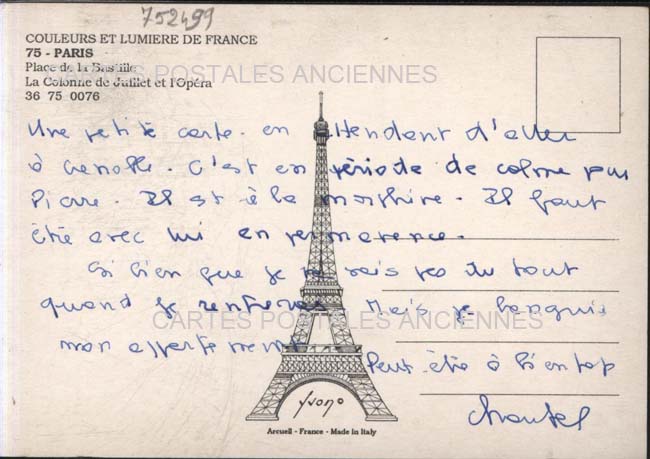 752499
COULEURS ET LUMIERE DE FRANCE
75 - PARIS
Place de la Bastille
La Colonne de Juillet et l'Opéra
36 75 0076
CARTES POSTALES ANCIENNES
Une petite carte en attendant d'aller
à . C'est en période de calme pour
Pierre. Il est à la morphine. Il faut
être avec lui en permanence.
Si bien que je ne sais pas du tout
quand je rentrerai Mais je
CARTES POSTALES ANCIENNES
mon appartement Peut-être à bientôt
Chantal
Yvon
Arcueil - France - Made in Italy